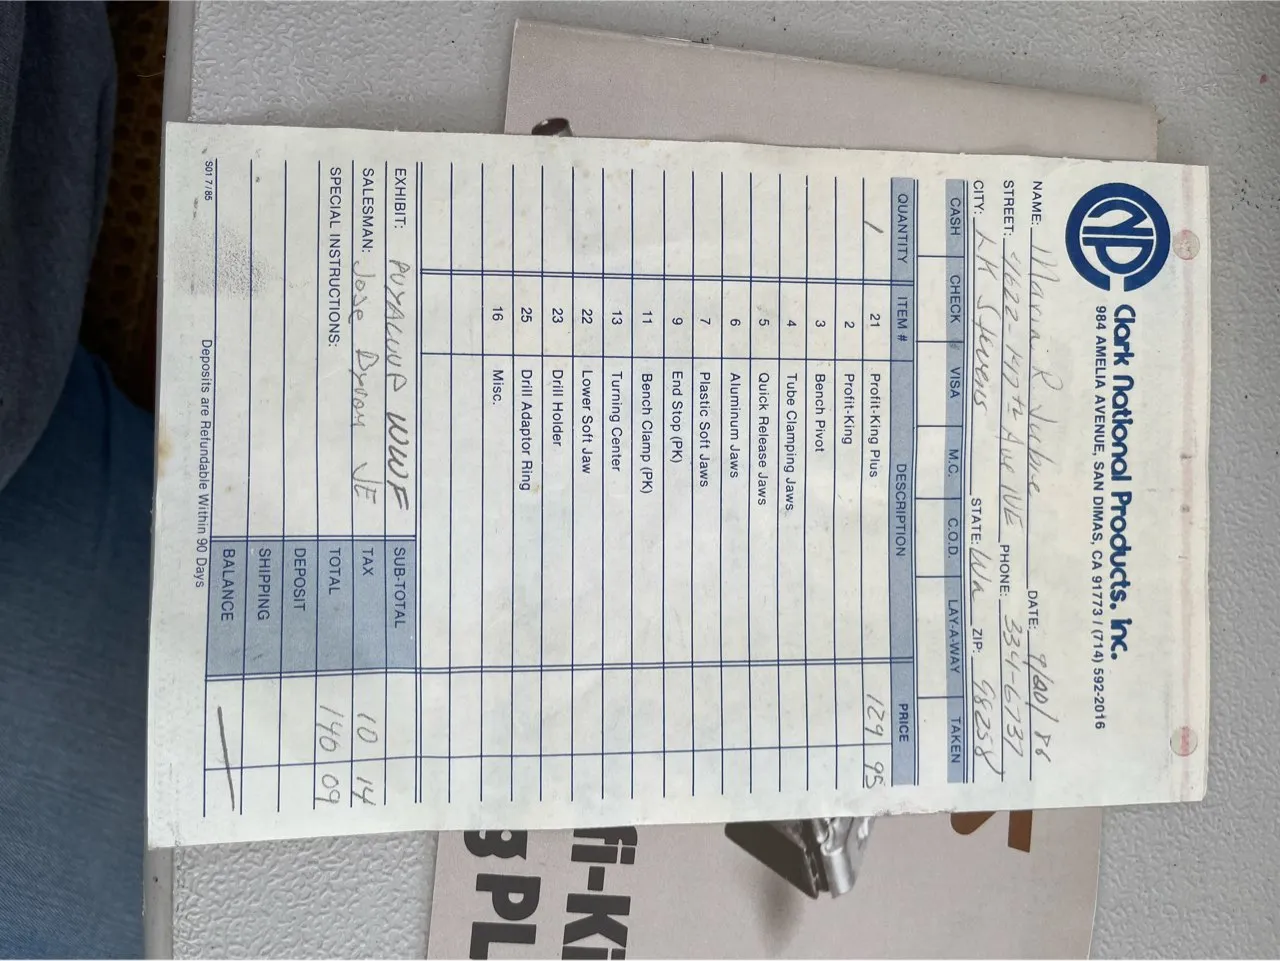 Clark National Products, Inc.
984 AMELIA AVENUE, SAN DIMAS, CA 91773 / (714) 592-2016
NAME: Marvin R DATE: 9/20/86
STREET: 4622-147th Ave NE PHONE: 334-6737
CITY: LK Stevens STATE: Wa ZIP: 98258
CASH CHECK VISA M.C. C.O.D. LAY-A-WAY TAKEN
QUANTITY ITEM # DESCRIPTION PRICE
1 21 Profit-King Plus 129 95
2 Profit-King
3 Bench Pivot
4 Tube Clamping Jaws
5 Quick Release Jaws
6 Aluminum Jaws
7 Plastic Soft Jaws
9 End Stop (PK)
11 Bench Clamp (PK)
13 Turning Center
22 Lower Soft Jaw
23 Drill Holder
25 Drill Adaptor Ring
16 Misc.
EXHIBIT: PUYALLUP WWF SUB-TOTAL
SALESMAN: Jose TAX 10 14
SPECIAL INSTRUCTIONS: TOTAL 140 09
DEPOSIT
SHIPPING
BALANCE
S01 7/85 Deposits are Refundable Within 90 Days
fi-Ki
PL